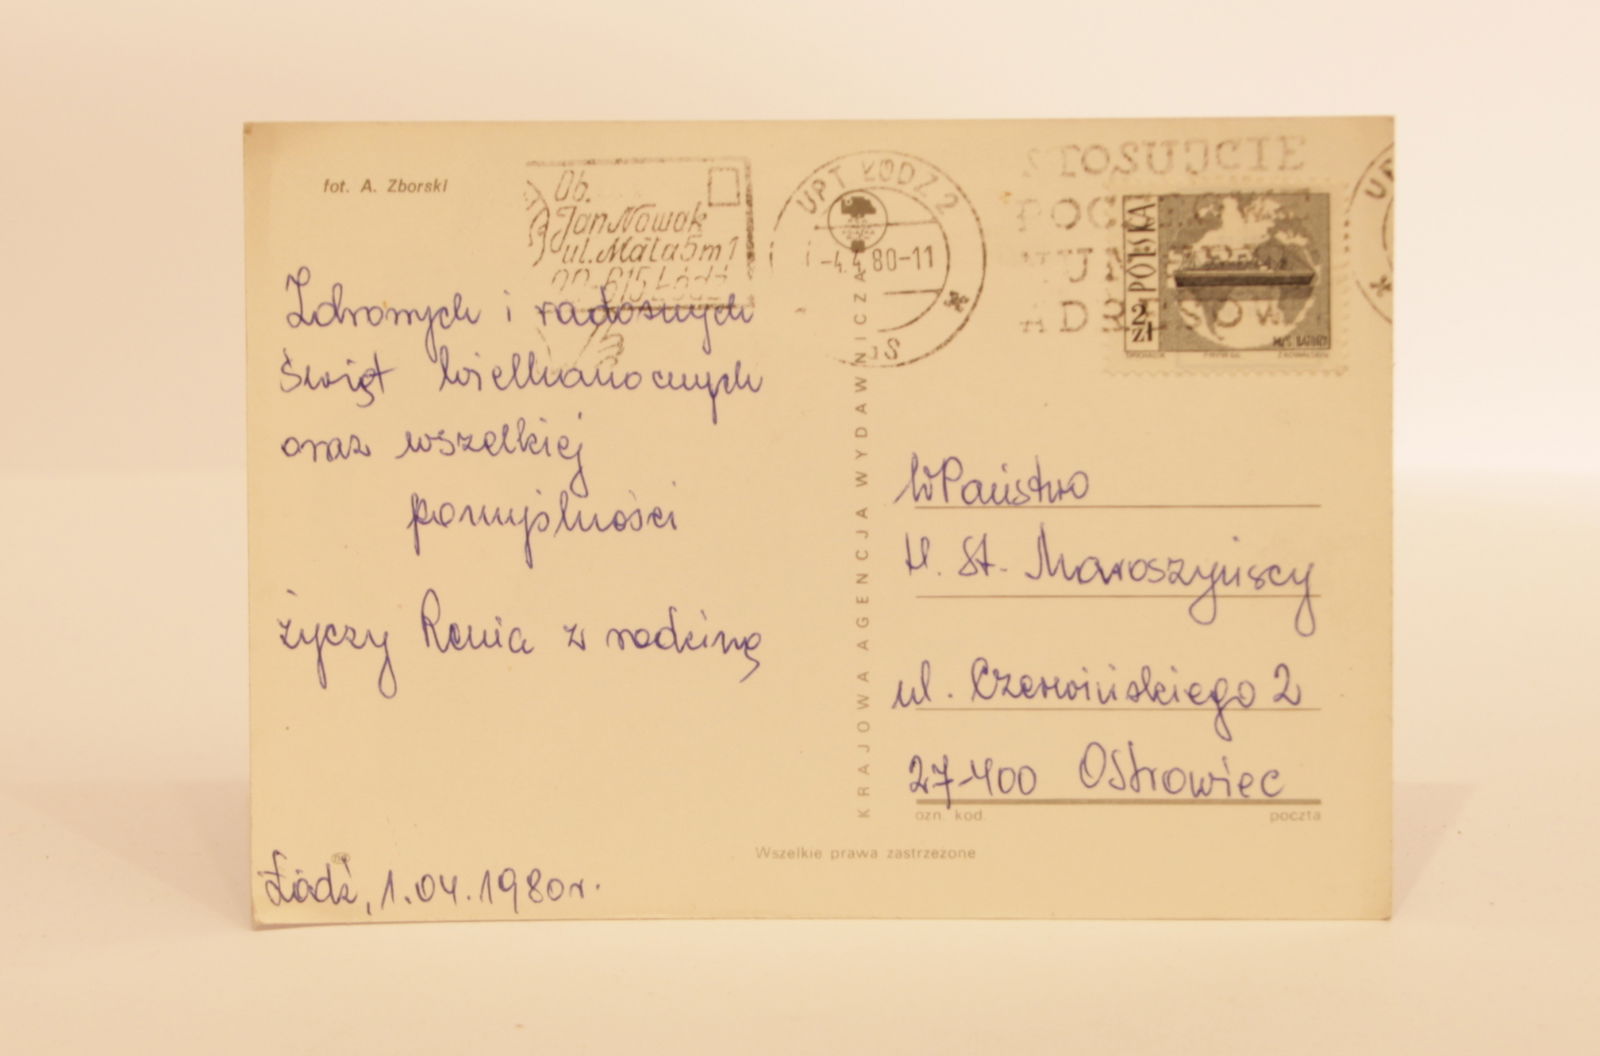 fot. A. Zborski
Ob.
Jan Nowak
ul. Mała 5 m 1
90-615 Łódź
UPT ŁÓDŹ 2
-4.4.80-11
STOSUJCIE
POCZTOWE
NUMERY
ADRESOWE
POLSKA
2 zł
M/S BATORY
Zdrowych i radosnych
Świąt Wielkanocnych
oraz wszelkiej
pomyślności
życzy Renia z rodziną
Łódź, 1.04.1980r.
KRAJOWA AGENCJA WYDAWNICZA
WPaństwo
H. St. Maroszyńscy
ul. Czerwińskiego 2
27-400 Ostrowiec
ozn. kod. poczta
Wszelkie prawa zastrzeżone